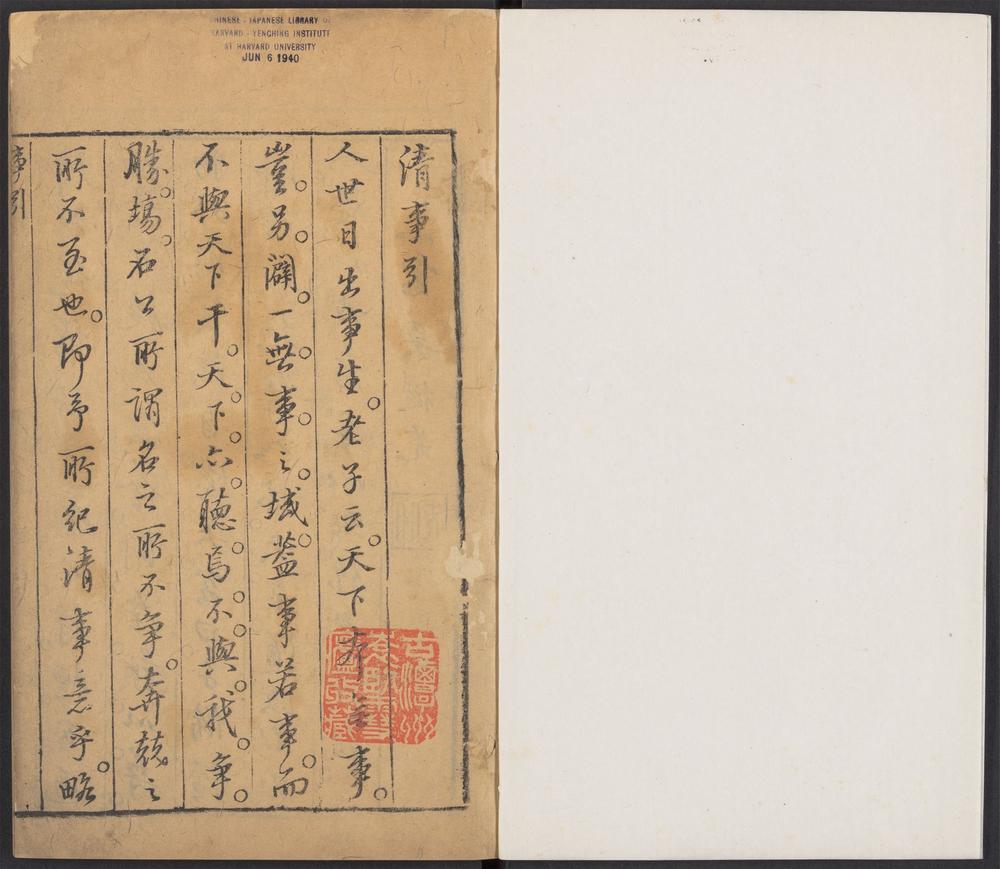 CHINESE - JAPANESE LIBRARY OF
HARVARD - YENCHING INSTITUTE
AT HARVARD UNIVERSITY
JUN 6 1940
清事引
人世日出事生。老子云。天下本无事。
豈。另。闢。一無。事。之。域。葢事若事。而
不與天下干。天。下。亦。聽。焉。不。與。我。爭。
勝。塲。石公所謂名之所不爭。奔兢之
所不至也。即予所紀清事意乎。略
事引
古潭州
袁臥雪
廬收藏